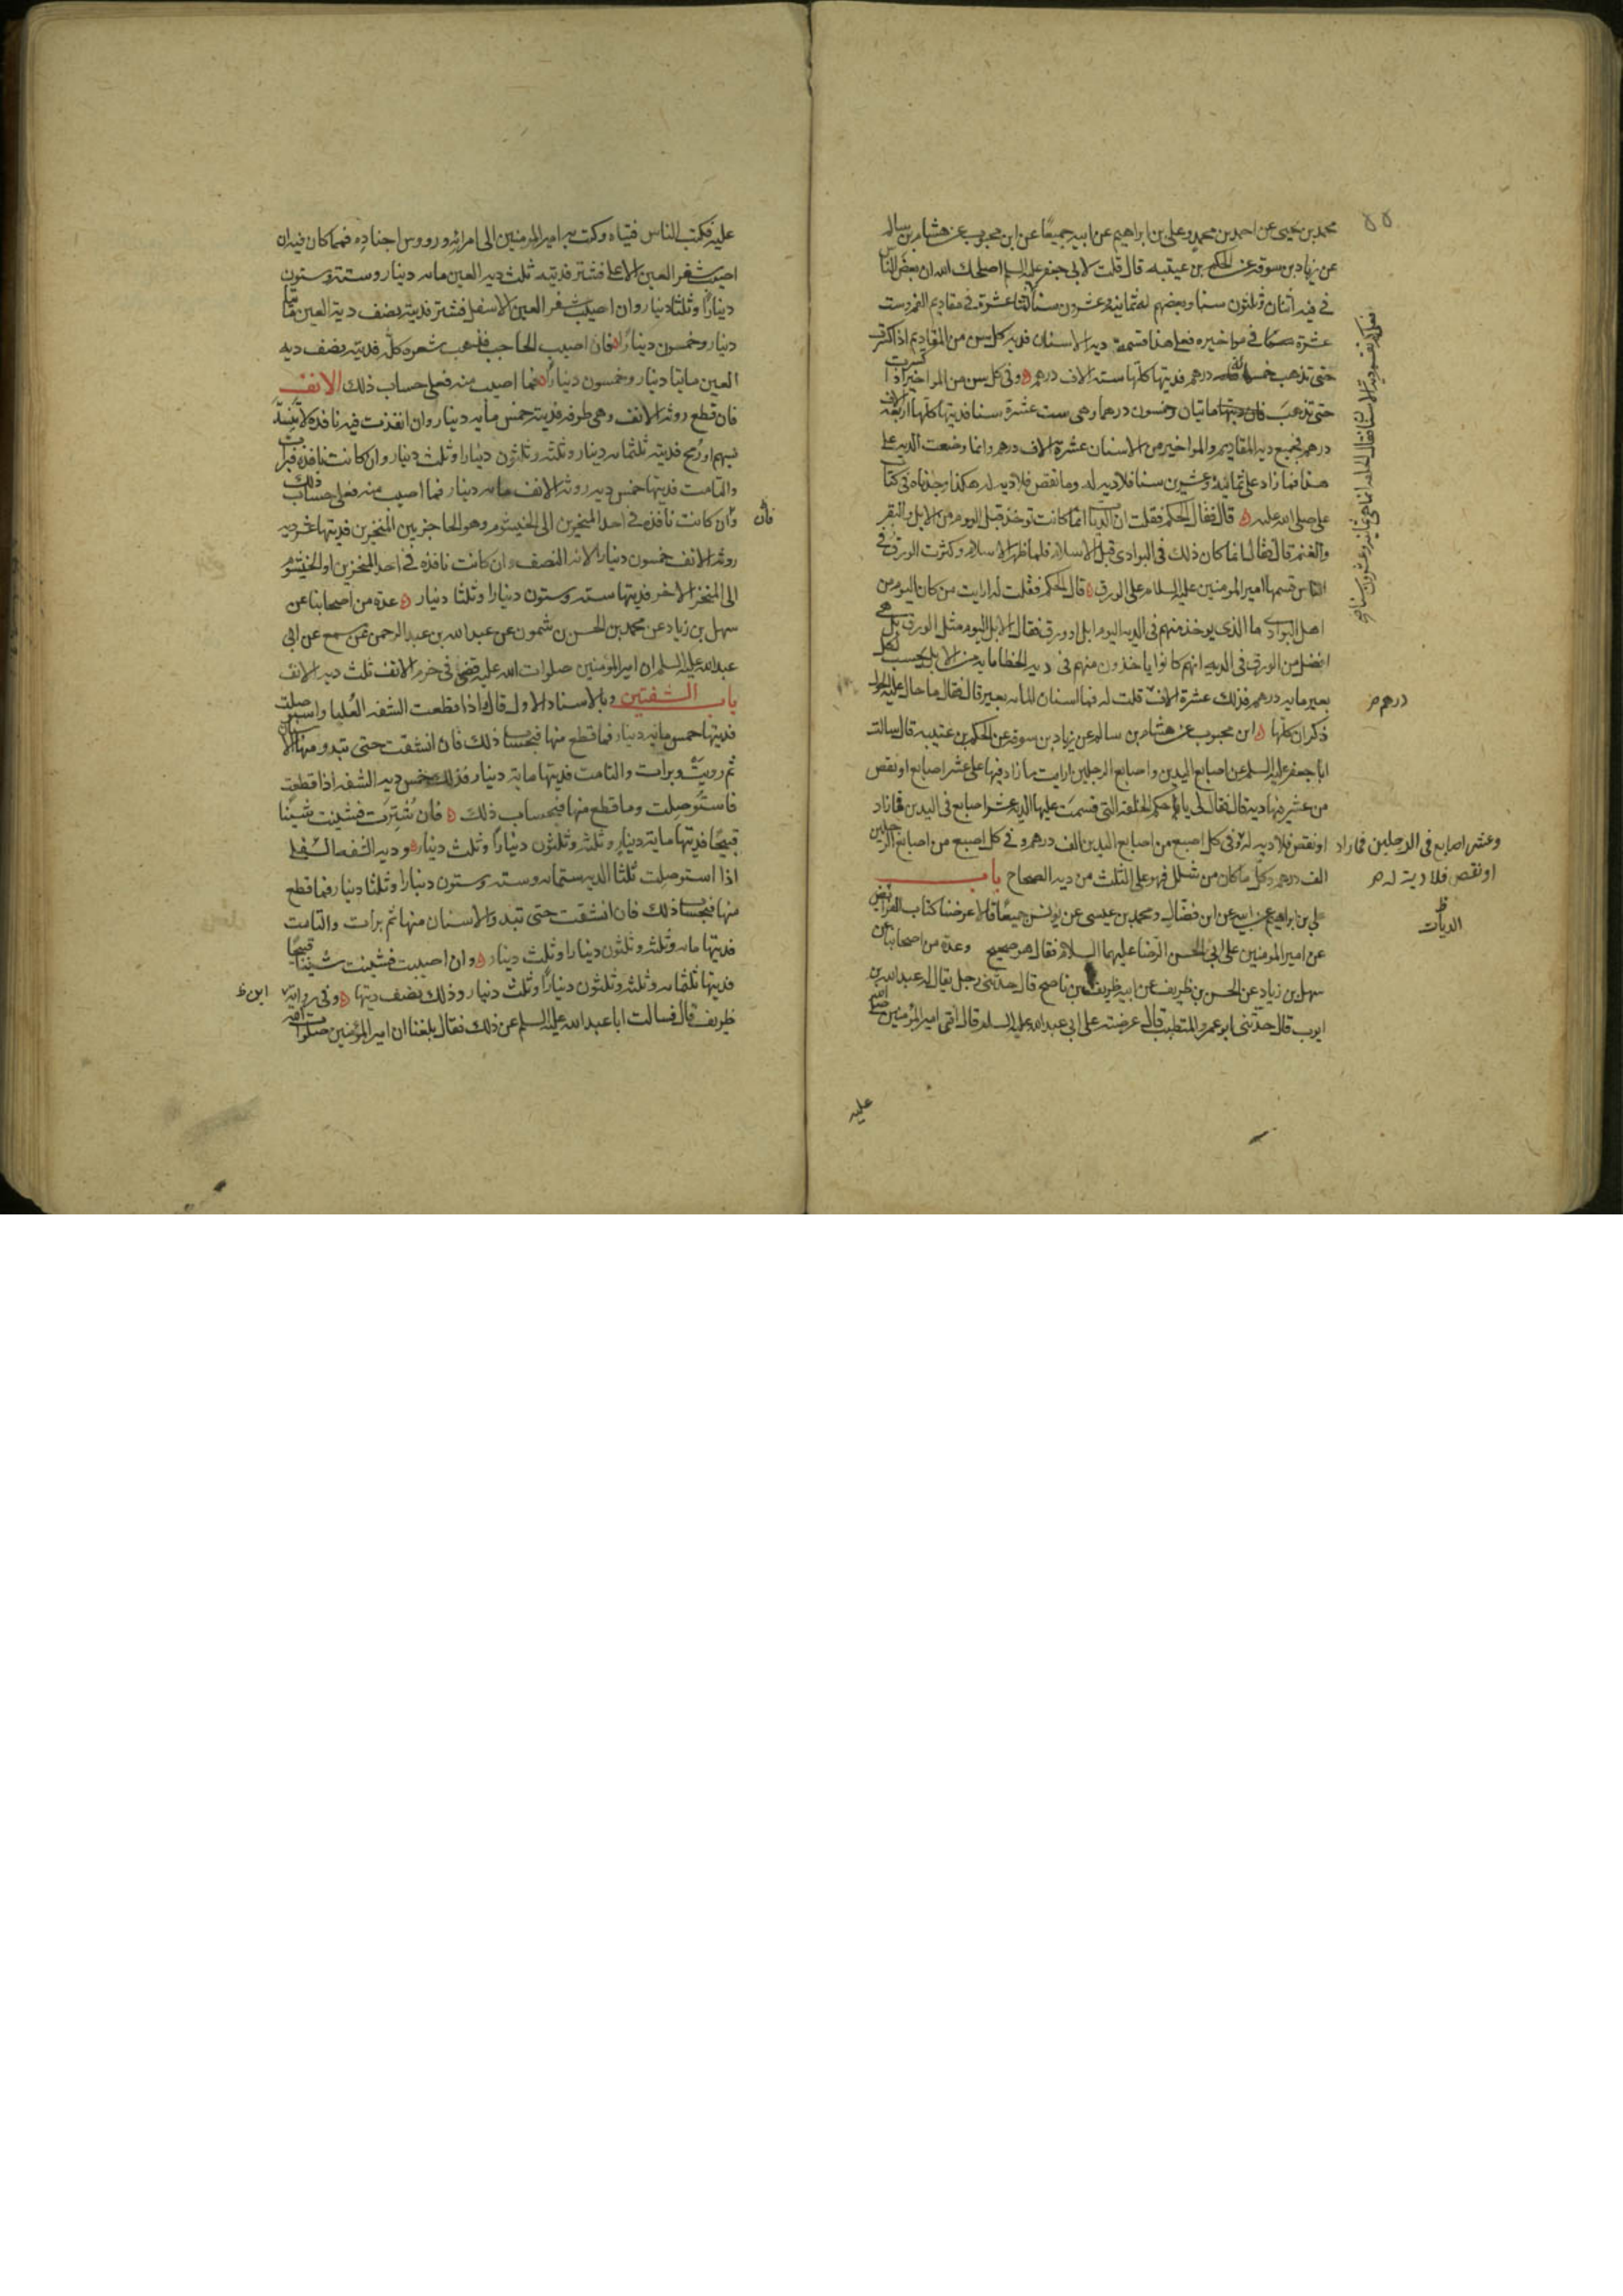 محمد بن يحيى عن احمد بن محمد وعلي بن ابراهيم عن ابيه جميعًا عن ابن محبوب عن هشام بن سالم
عن زياد بن سوقه عن الحكم بن عيتبه قال قلت لابي جعفر عليه السلم اصلحك الله ان بعض الناس
في فيه اثنان وثلثون سنا وبعضهم له ثمانية وعشرون سنا اثنتا عشرة في مقاديم الفم وست
عشرة في مواخيره فعلى هذا قسمة ديه الاسنان فديه كل سن من المقاديم اذا كسرت
حتى تذهب خمسمائه درهم فديتها كلها سته الاف درهم وفي كل سن من المواخير اذا كسرت
حتى تذهب مايتان وخمسون درهما وهي ست عشرة سنا فديتها كلها اربعة الاف
درهم فجميع ديه المقاديم والمواخير من الاسنان عشرة الاف درهم وانما وضعت الديه على
هذا فما زاد على ثمانية وعشرين سنا فلا ديه له وما نقص فلا ديه له هكذا وجدناه في كتاب
علي صلى الله عليه قال فقال الحكم فقلت ان الديات انما كانت توخذ قبل اليوم من الابل والبقر
والغنم قال فقال انما كان ذلك في البوادي قبل الاسلام فلما ظهر الاسلام وكثرت الورق في
الناس قسمها امير المومنين عليه السلام على الورق قال الحكم فقلت له ارايت من كان اليوم من
اهل البوادي ما الذي يوخذ منهم في الديه اليوم ابل او ورق فقال الابل اليوم مثل الورق بل هي
افضل من الورق في الديه انهم كانوا ياخذون منهم في ديه الخطا مايه من الابل يحسب لكل
بعير مايه درهم فذلك عشرة الاف قلت له فما اسنان المايه بعير قال فقال ما حال عليه الحول
درهم
ذكران كلها ابن محبوب عن هشام بن سالم عن زياد بن سوقه عن الحكم بن عتيبه قال سالت
ابا جعفر عليه السلم عن اصابع اليدين واصابع الرجلين ارايت ما زاد فيها على عشر اصابع او نقص
من عشر فيها ديه قال فقال لي يا حكم الخلقه التي قسمت عليها الديه عشر اصابع في اليدين فما زاد
او نقص فلا ديه له وفي كل اصبع من اصابع اليدين الف درهم وفي كل اصبع من اصابع الرجلين
وعشر اصابع في الرجلين فما زاد
او نقص فلا دية له
الف درهم وكل ما كان من شلل فهو على الثلث من ديه الصحاح باب
الديات
علي بن ابراهيم عن ابيه عن ابن فضال ومحمد بن عيسى عن يونس جميعًا قالا عرضنا كتاب الفرايض
عن امير المومنين على ابي الحسن الرضا عليهما السلام فقال هو صحيح وعدة من اصحابنا عن
سهل بن زياد عن الحسن بن ظريف عن ابيه ظريف بن ناصح قال حدثني رجل يقال له عبدالله بن
ايوب قال حدثني ابو عمرو المتطبب قال عرضته على ابي عبد الله عليه السلم قال افتى امير المؤمنين صلى الله
عليه
عليه فكتب الناس فتياه وكتب به امير المومنين الى امرائه ورووس اجناده فمما كان فيه ان
اصيب شفر العين الاعلى فشتر فديته ثلث ديه العين مايه دينار وستة وستون
دينارًا وثلثا دينار وان اصيب شفر العين الاسفل فشتر فديته نصف دية العين مايتا
دينار وخمسون دينارًا فان اصيب الحاجب فذهب شعره كله فديته نصف ديه
العين مايتا دينار وخمسون دينارًا فما اصيب منه فعلى حساب ذلك الانف
فان قطع روثه الانف وهي طرفه فديته خمس مايه دينار وان انفذت فيه نافذه لا تنسد
بسهم او رمح فديته ثلثمايه دينار وثلثه وثلثون دينارا وثلث دينار وان كانت نافذه فبرات
والتامت فديتها خمس ديه روثه الانف مايه دينار فما اصيب منه فعلى حساب ذلك
فان
وان كانت نافذه في احد المنخرين الى الخيشوم وهو الحاجز بين المنخرين فديتها عشر ديه
روثه الانف خمسون دينارا لانه النصف وان كانت نافذه في احد المنخرين او الخيشوم
الى المنخر الاخر فديتها سته وستون دينارا وثلثا دينار عدة من اصحابنا عن
سهل بن زياد عن محمد بن الحسن بن شمون عن عبد الله بن عبد الرحمن عن مسمع عن ابي
عبد الله عليه السلم ان امير المؤمنين صلوات الله عليه قضى في خرم الانف ثلث ديه الانف
باب الشفتين وبالاسناد الاول قال واذا قطعت الشفه العليا واستوصلت
فديتها خمس مايه دينار فما قطع منها فبحساب ذلك فان انشقت حتى تبدو منها الاسنان
ثم دويت وبرات والتامت فديتها ماية دينار فذلك خمس ديه الشفه اذا قطعت
فاستوصلت وما قطع منها فبحساب ذلك فان شترت فشينت شينًا
قبيحًا فديتها ماية دينار وثلثه وثلثون دينارًا وثلث دينار وديه الشفه السفلى
اذا استوصلت ثلثا الديه ستمايه وسته وستون دينارا وثلثا دينار فما قطع
منها فبحساب ذلك فان انشقت حتى تبدو الاسنان منها ثم برات والتامت
فديتها مايه وثلثه وثلثون دينارا وثلث دينار وان اصيبت فشينت شينا قبيحًا
فديتها ثلثمايه وثلثه وثلثون دينارًا وثلث دينار وذلك نصف ديتها وفي رواية
ابن
ظريف قال فسالت ابا عبد الله عليه السلم عن ذلك فقال بلغنا ان امير المؤمنين صلوات الله